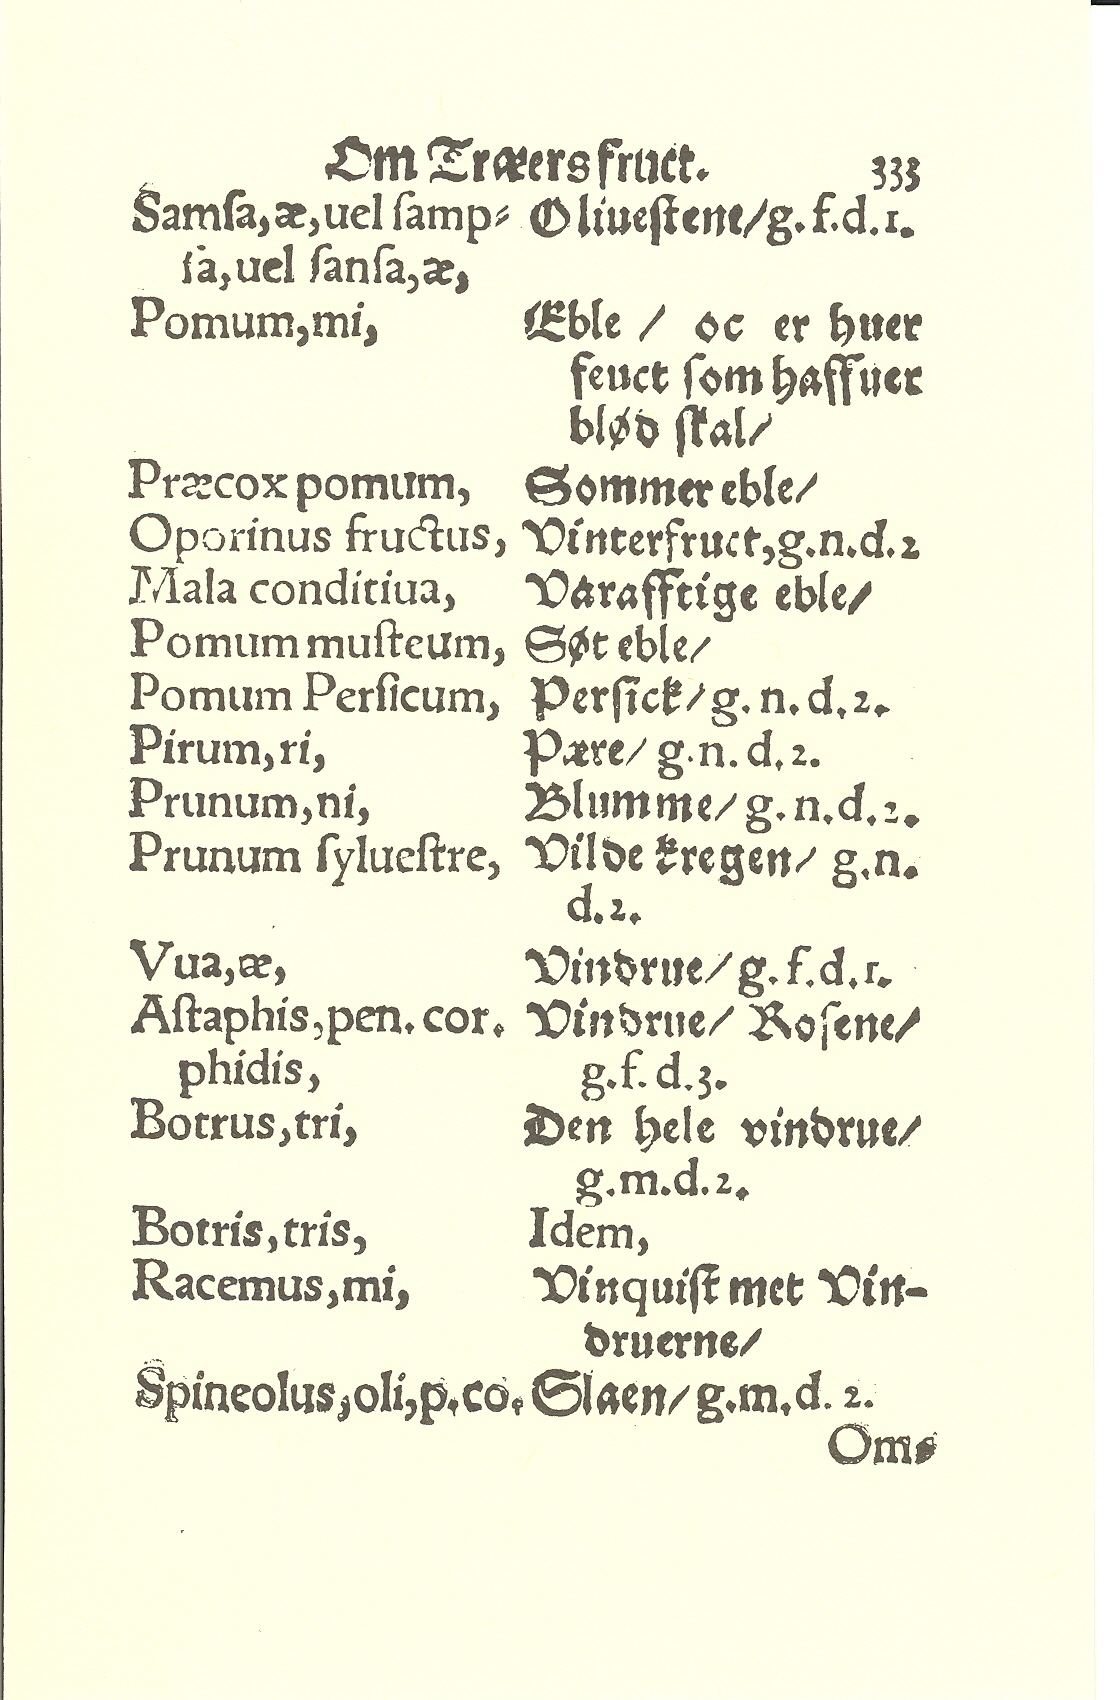 Om Træers fruct. 333
Samſa,æ,uel ſamp⸗ Oliueſtene/g.f.d.1.
ſa,uel ſanſa,æ,
Pomum,mi, Eble / oc er huer
feuct ſom haffuer
blød ſkal/
Præcox pomum, Sommer eble/
Oporinus fructus, Vinterfruct,g.n.d.2
Mala conditiua, Varafftige eble/
Pomum muſteum, Søt eble/
Pomum Perſicum, Perſick/g.n.d.2.
Pirum,ri, Pære/ g.n.d.2.
Prunum,ni, Blumme/g.n.d.2.
Prunum ſylueſtre, Vilde kregen/ g.n.
d.2.
Vua,æ, Vindrue/g.f.d.1.
Aſtaphis,pen.cor. Vindrue/ Roſene/
phidis, g.f.d.3.
Botrus,tri, Den hele vindrue/
g.m.d.2.
Botris,tris, Idem,
Racemus,mi, Vinquiſt met Vin-
druerne/
Spineolus,oli,p.co. Slaen/g.m.d.2.
Om⸗